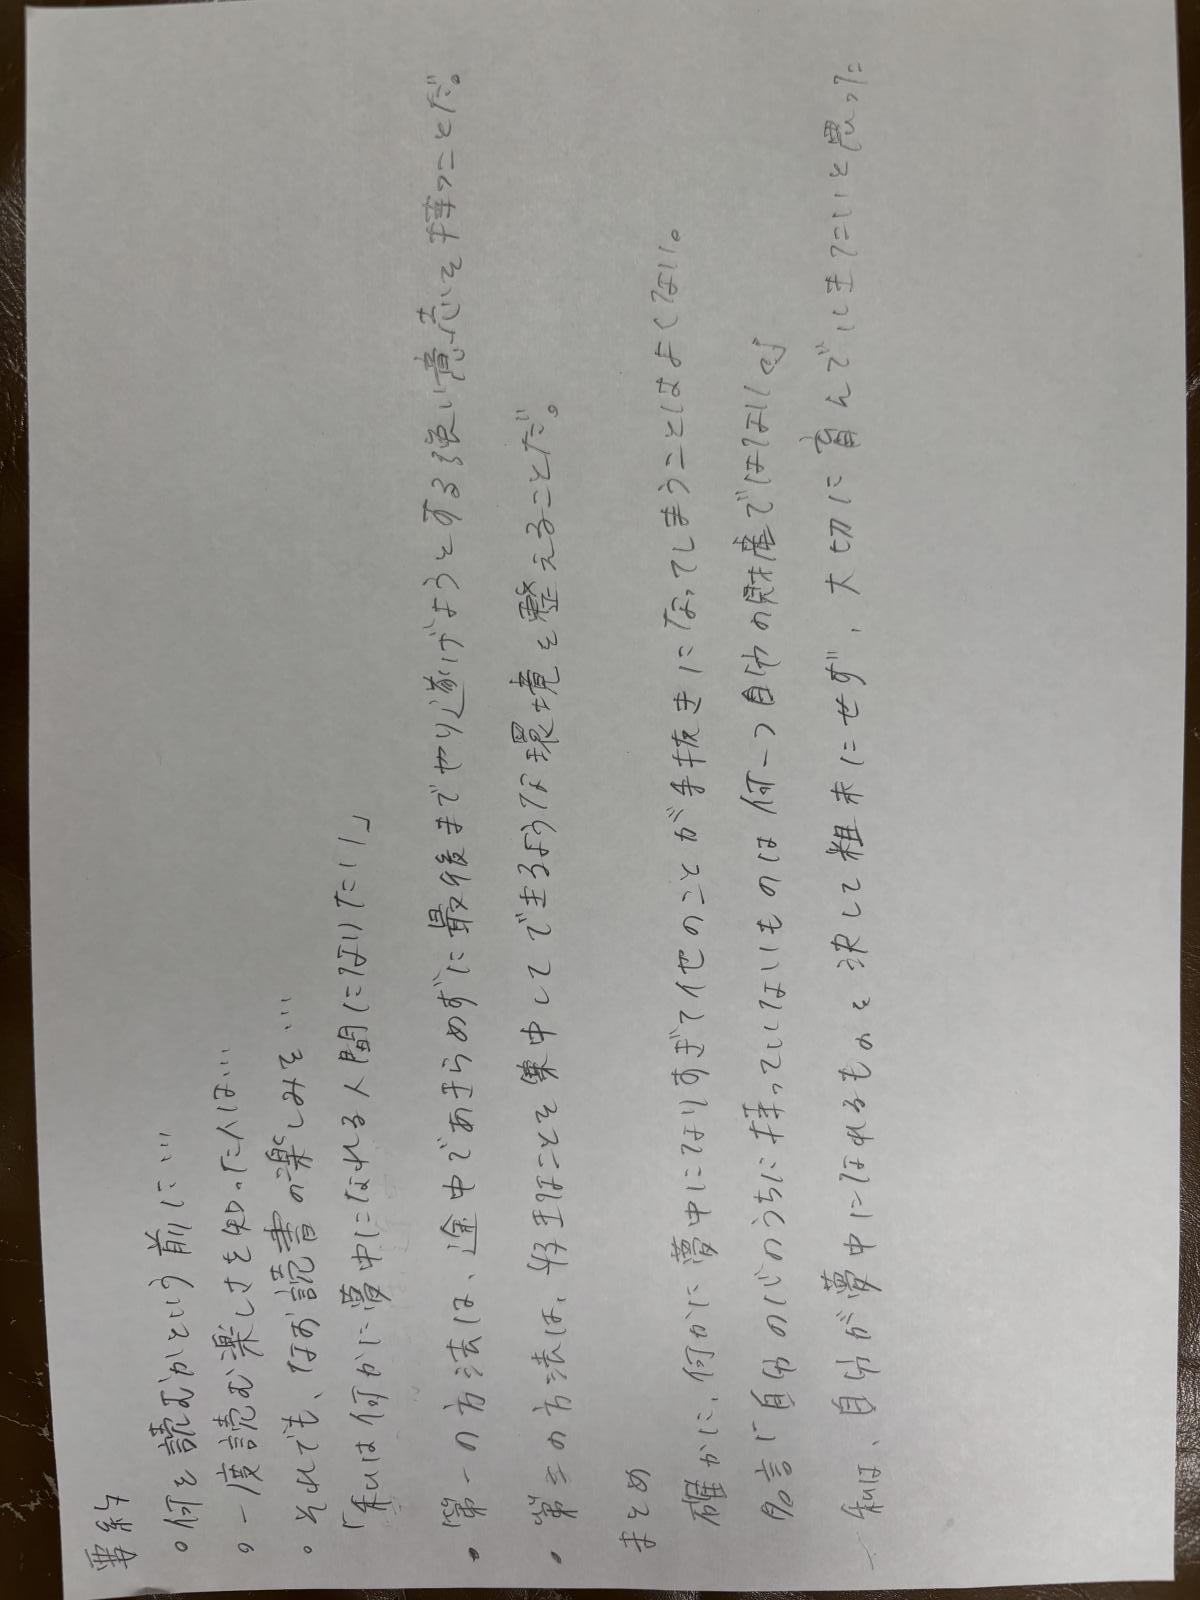 要約
・何を読むかという前に…
・一度読む楽しさを知った人は…
・それでも、なお読書の楽しみを…
「私は何かに夢中になれる人間になりたい」
・第一の方法は、途中であきらめずに最後までやり遂げようとする強い意志を持つことだ。
・第二の方法は、好きなことを集中してできるような環境を整えることだ。
まとめ
確かに、何かに夢中になりすぎて他のことが手抜きになってしまうことはよくない。
名言「自分の心のうちに持っていないものは何一つ自分の財産ではない。」
私は、自分が夢中になれるものを決して粗末にせず、大切に育んでいきたいと思った